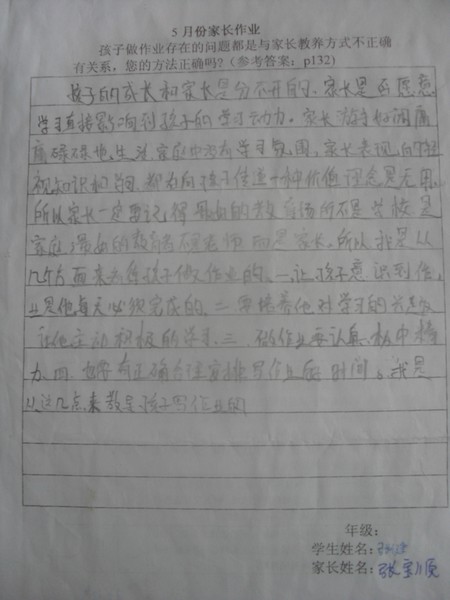 5月份家长作业
孩子做作业存在的问题都是与家长教养方式不正确
有关系，您的方法正确吗?（参考答案：p132）
孩子的成长和家长是分不开的、家长是否愿意
学习直接影响到孩子的学习动力。家长
生活家庭中没有学习氛围，家长表现
视知识和 都为向孩子传 一种价值理念是无用
所以家长一定要记得最好的教育场所不是学校是
家庭，最好的教 不是老师而是家长。所以我是从
几个方面来 孩子做作业的、一让孩子意识到作
业是他每天必须完成的、二要培养他对学习的兴趣
让他主动积极的学习、三、做作业要认真、集中精
力、四、也要有正确方法安排写作业的时间。我是
从这几点来教导孩子写作业的
年级：
学生姓名：
家长姓名：张